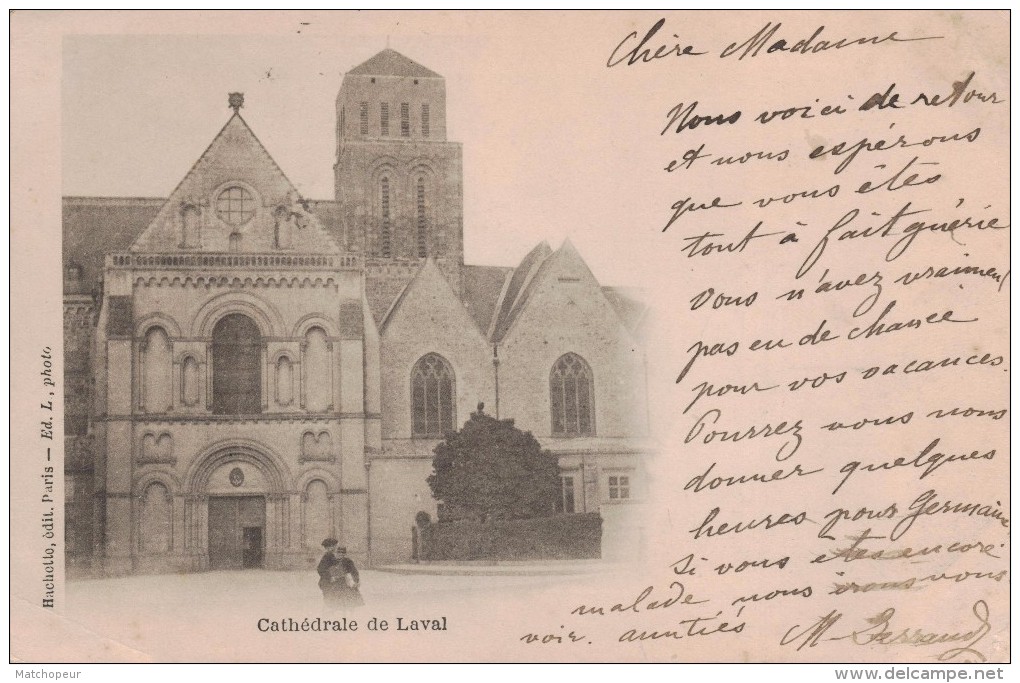 Chère Madame
Nous voici de retour
et nous espérons
que vous êtes
tout à fait guérie
Vous n'avez vraiment
pas eu de chance
pour vos vacances.
Pourrez vous nous
donner quelques
heures pour Germaine
Si vous êtes encore
malade nous irons vous
voir. M.
Cathédrale de Laval
Hachette, édit. Paris — Ed. L., photo
Matchopeur
www.delcampe.net